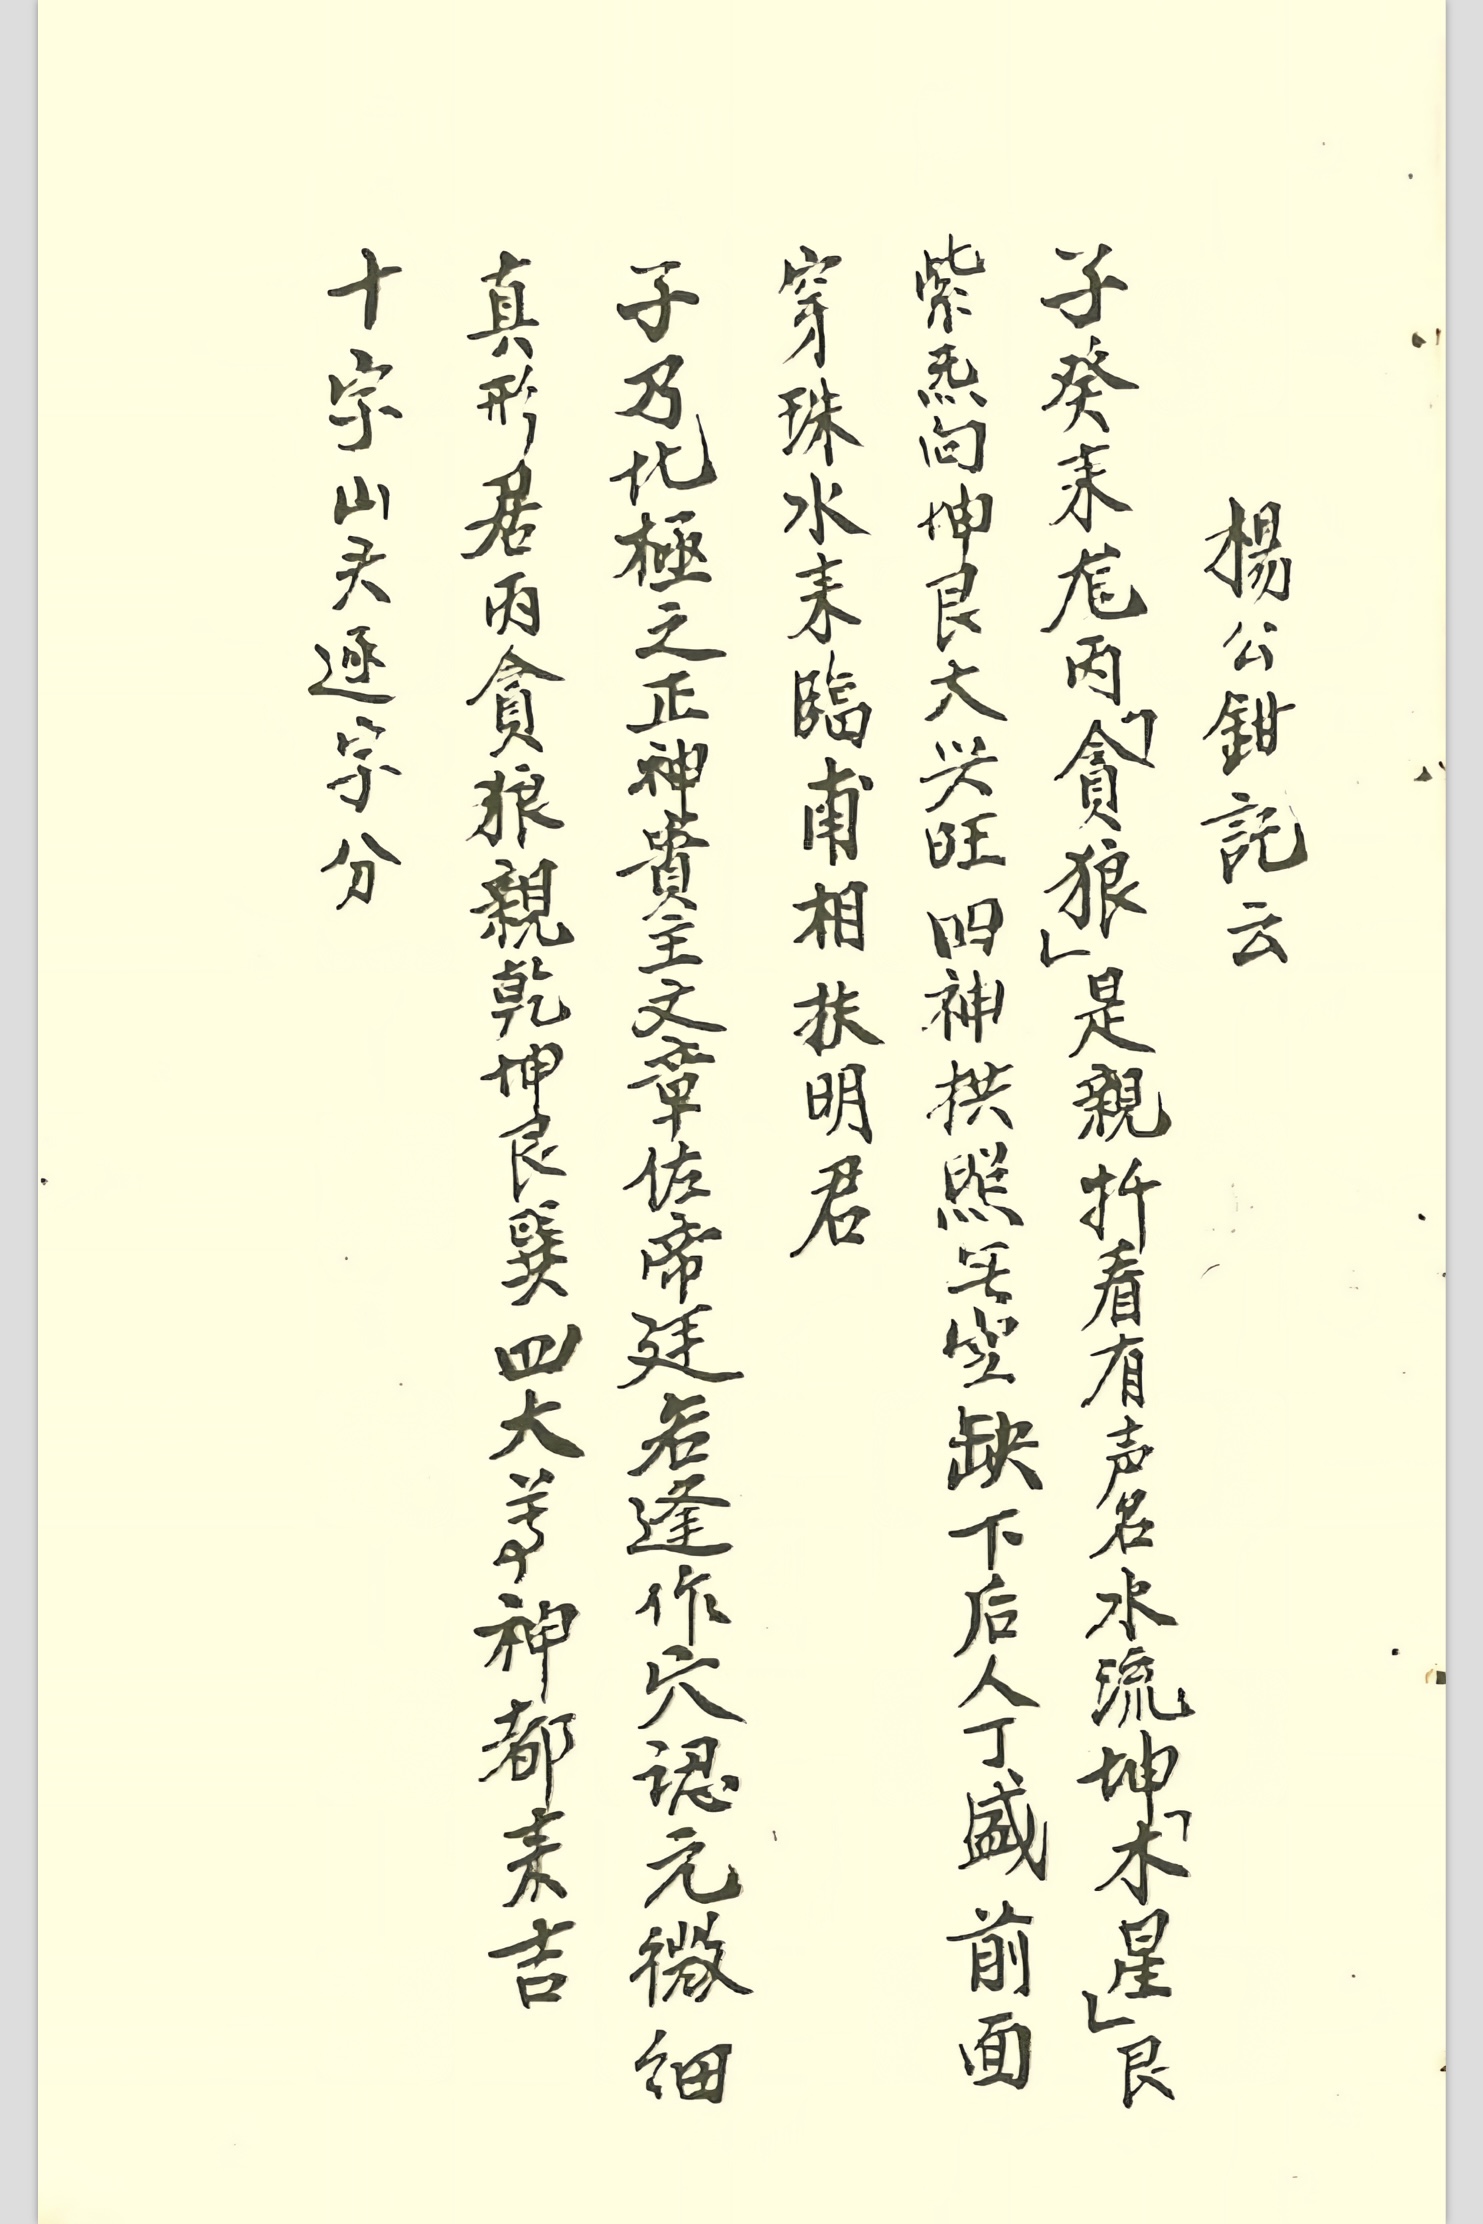 楊公鉗記云
子癸来龙丙「貪狼」是親折看有声名水流坤「木星」艮
紫炁向坤艮大兴旺四神拱照无空缺下后人丁盛前面
穿珠水来臨甫相扶明君
子乃北極之正神貴主文章佐帝廷若逢作穴認元微細
真形居丙貪狼親乾坤艮巽四大尊神都来吉
十字山夫逐字分